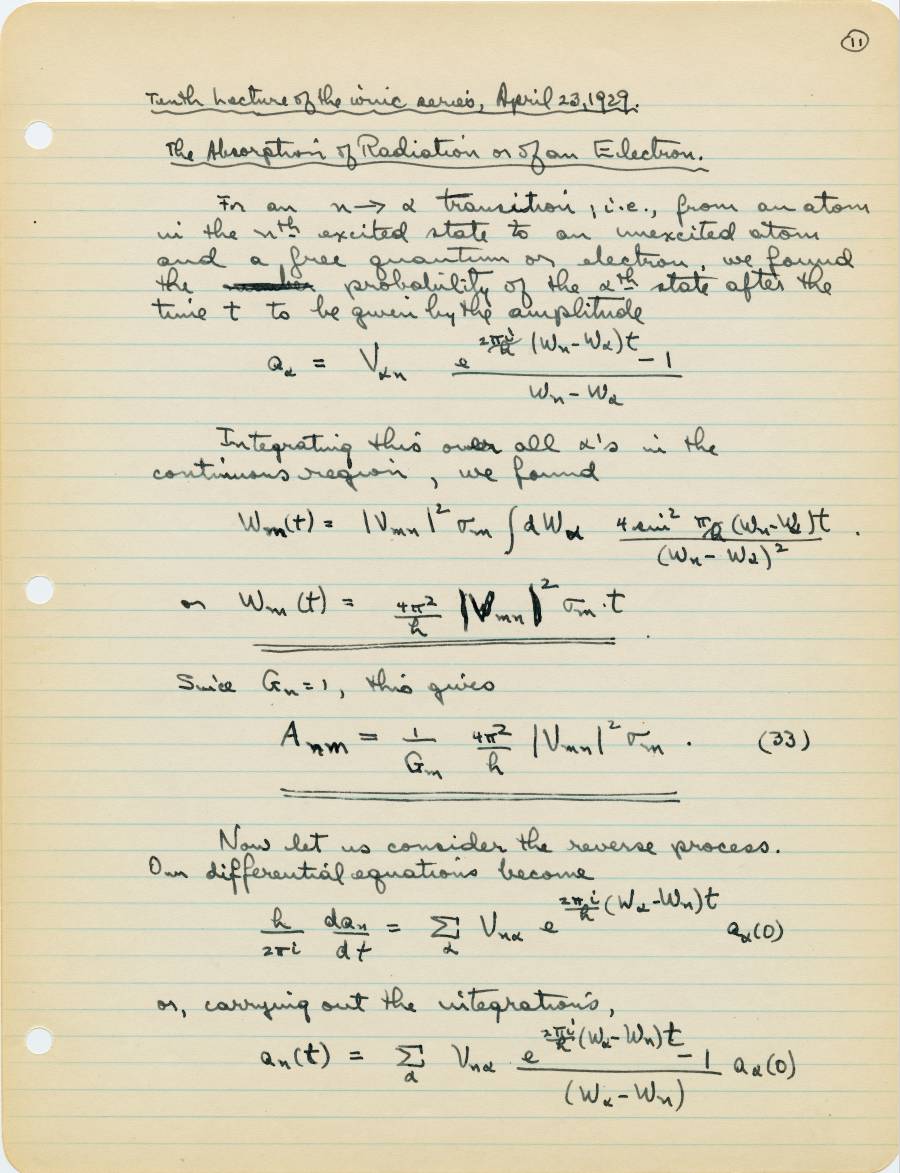 11
Tenth Lecture of the ionic series, April 23, 1929.
The Absorption of Radiation or of an Electron.
For an n → α transition, i.e., from an atom
in the nth excited state to an unexcited atom
and a free quantum or electron, we found
the probability of the αth state after the
time t to be given by the amplitude
a_α = V_αn (e^{2πi/h (W_n - W_α)t} - 1) / (W_n - W_α)
Integrating this over all α's in the
continuous region, we found
W_m(t) = |V_mn|² σ_m ∫ dW_α (4 sin² π/h (W_n - W_α)t) / (W_n - W_α)² .
or W_m(t) = 4π²/h |V_mn|² σ_m · t .
Since G_n = 1, this gives
A_nm = 1/G_m 4π²/h |V_mn|² σ_m . (33)
Now let us consider the reverse process.
Our differential equations become
h/2πi da_n/dt = Σ_α V_nα e^{2πi/h (W_α - W_n)t} a_α(0)
or, carrying out the integrations,
a_n(t) = Σ_α V_nα (e^{2πi/h (W_α - W_n)t} - 1) / (W_α - W_n) a_α(0)